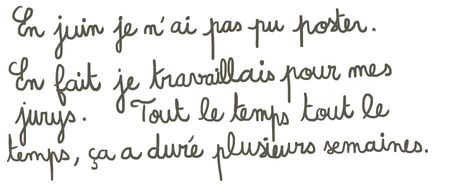 En juin je n'ai pas pu poster.
En fait je travaillais pour mes
jurys. Tout le temps tout le
temps, ça a duré plusieurs semaines.